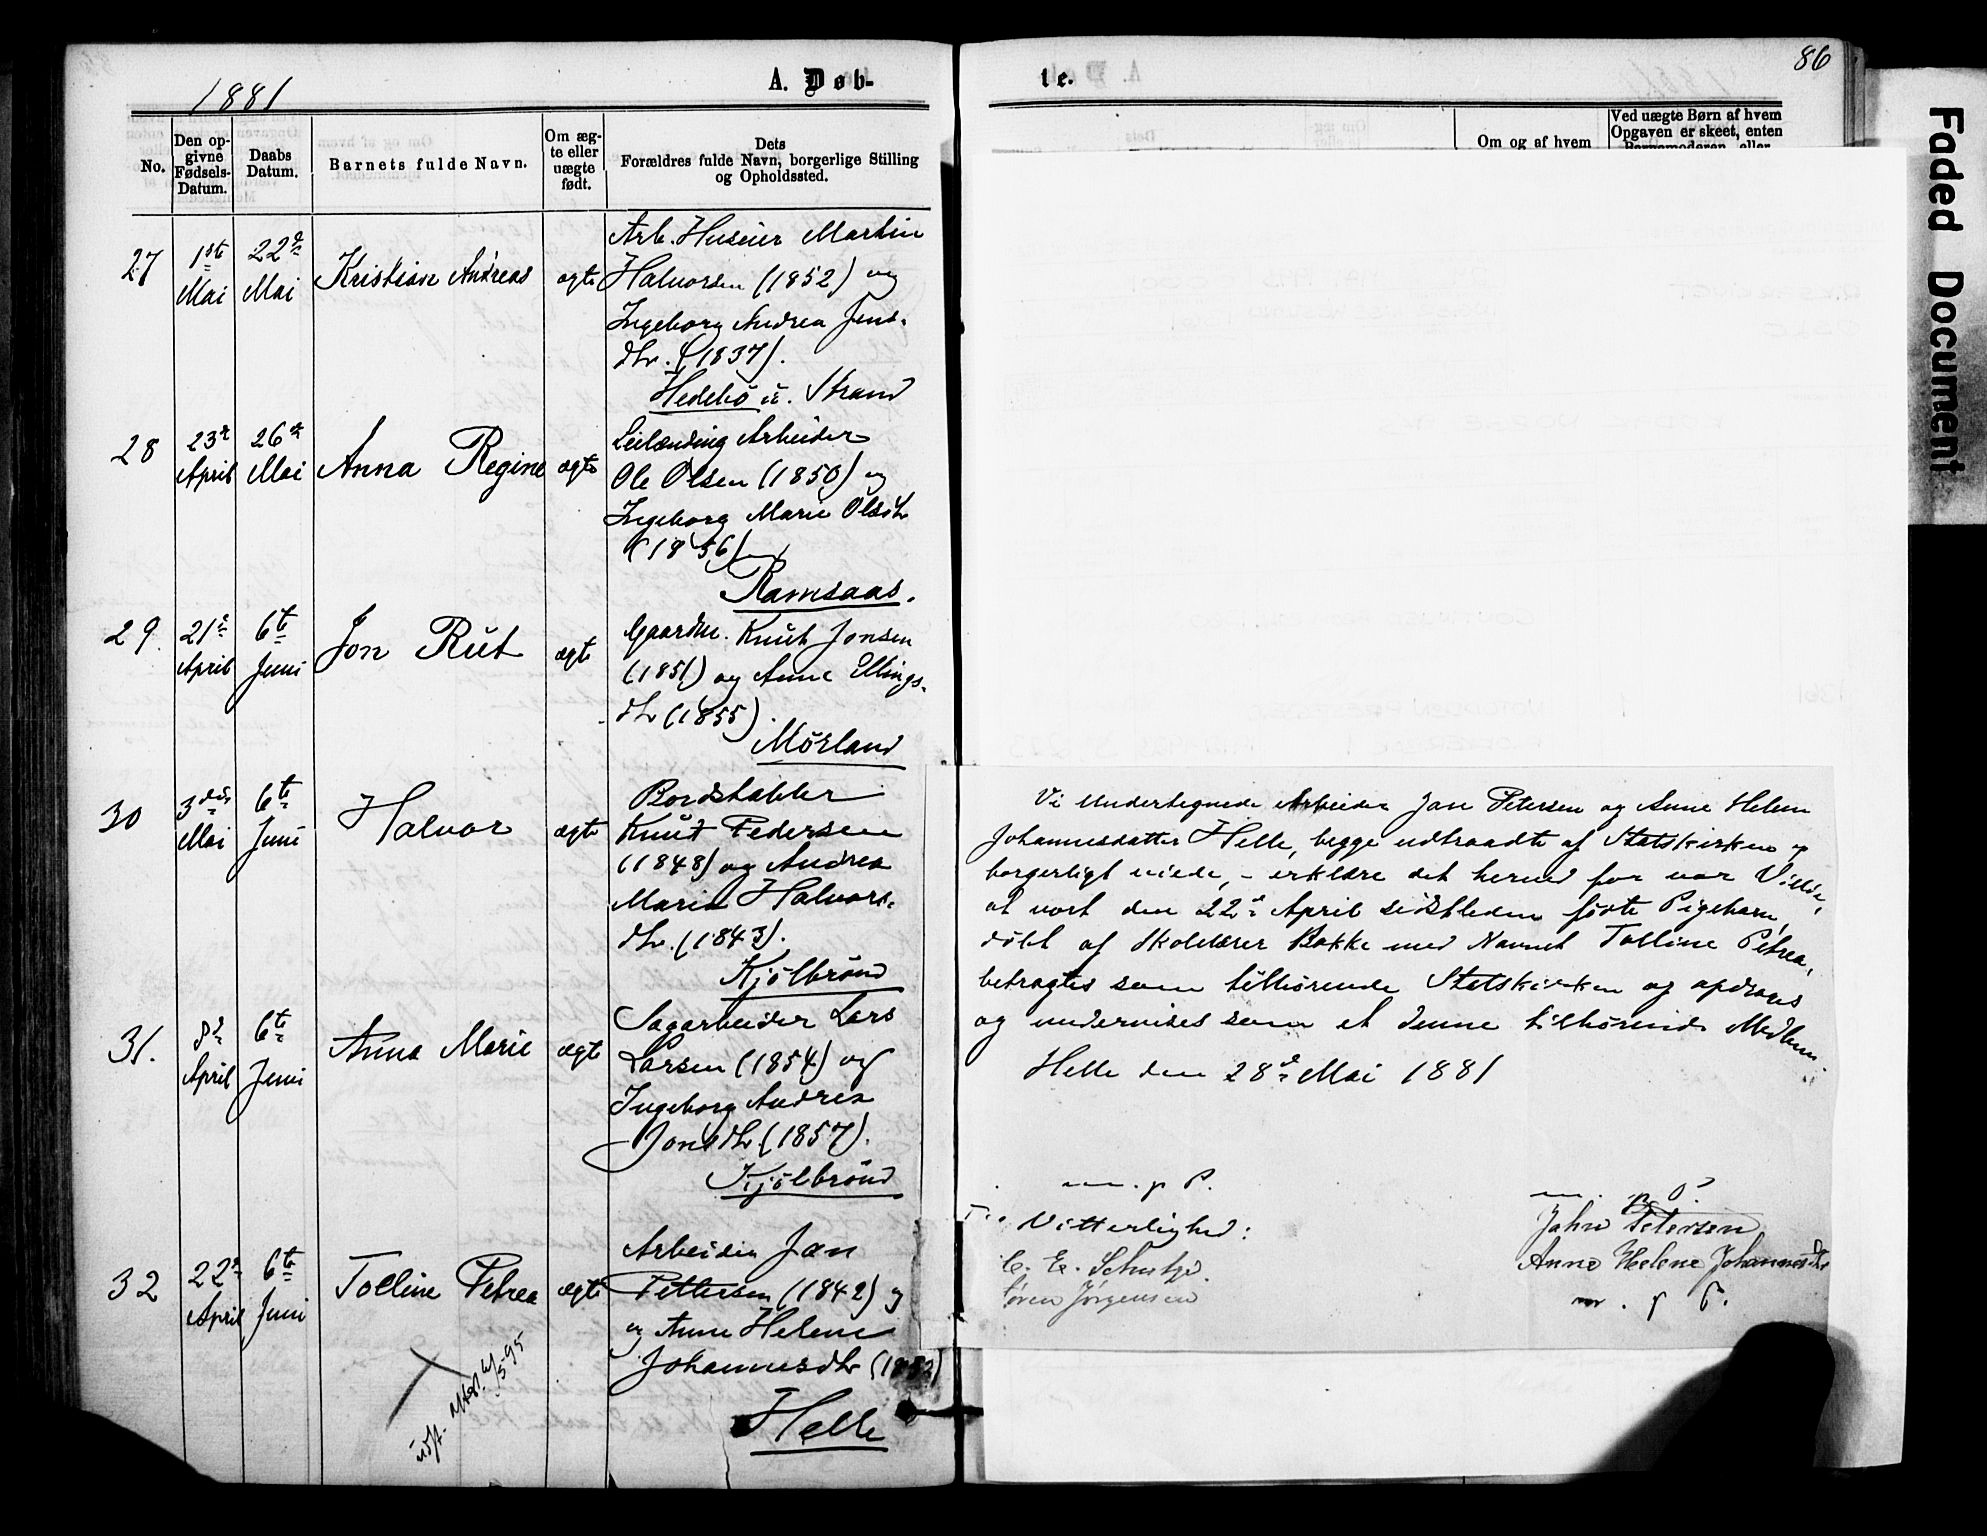 1881
A. Døb-
No.
Den op-
givne
Fødsels-
Datum.
Daabs
Datum.
Barnets fulde Navn.
Om æg-
te eller
uægte
født.
Dets
Forældres fulde Navn, borgerlige Stilling
og Opholdssted.
27
1ste
Mai
22de
Mai
Kristian Andreas
ægte
Arb. Huseier Martin
Halvorsen (1852) og
Ingeborg Andrea Jens-
dtr. (1837).
Hedebø u. Strand
28
23de
April
26de
Mai
Anna Regine
ægte
Leilænding Arbeider
Ole Olsen (1850) og
Ingeborg Marie Olsdtr
(1856)
Ramsaas.
29.
21de
April
6te
Juni
Jon Rut
ægte
Gaardm. Knut Jonsen
(1851) og Anne Ellings-
dtr (1855).
Mørland
30
3die
Mai
6te
Juni
Halvor
ægte
Bordstabler
Knut Pedersen
(1848) og Andrea
Maria Halvors-
dtr. (1843).
Kjølbrønd
31.
8de
April
6te
Juni
Anna Marie
ægte
Sagarbeider Lars
Larsen (1854) og
Ingeborg Andrea
Jonsdtr. (1857).
Kjølbrønd
32
22de
April
6te
Juni
Tolline Petrea
ægte
Arbeider Jan
Pettersen (1842) og
og Anne Helene
Johannesdtr (1852)
Helle
udst. attest 4/5 95
te.
86
Om og af hvem
Ved uægte Børn af hvem
Opgaven er skeet, enten
Barnemoderen, eller
Vi undertegnede Arbeider Jan Petersen og Anne Helene
Johannesdatter Helle, begge udtraadte af Statskirken og
borgerligt viede, - erklære det herved for vor Villie,
at vort den 22de April sidstleden fødte Pigebarn,
døbt af Skolelærer Bakke med Navnet Tolline Petrea,
betragtes som tilhørende Statskirken og opdrages
og undervises som et denne tilhørende Medlem.
Helle den 28de Mai 1881
m. p P.
Til Vitterlighed:
C. E. Schutze.
Søren Jørgensen
m. p P.
Jahn Petersen
Anne Helene Johannesdtr
m. p P.
Faded Document